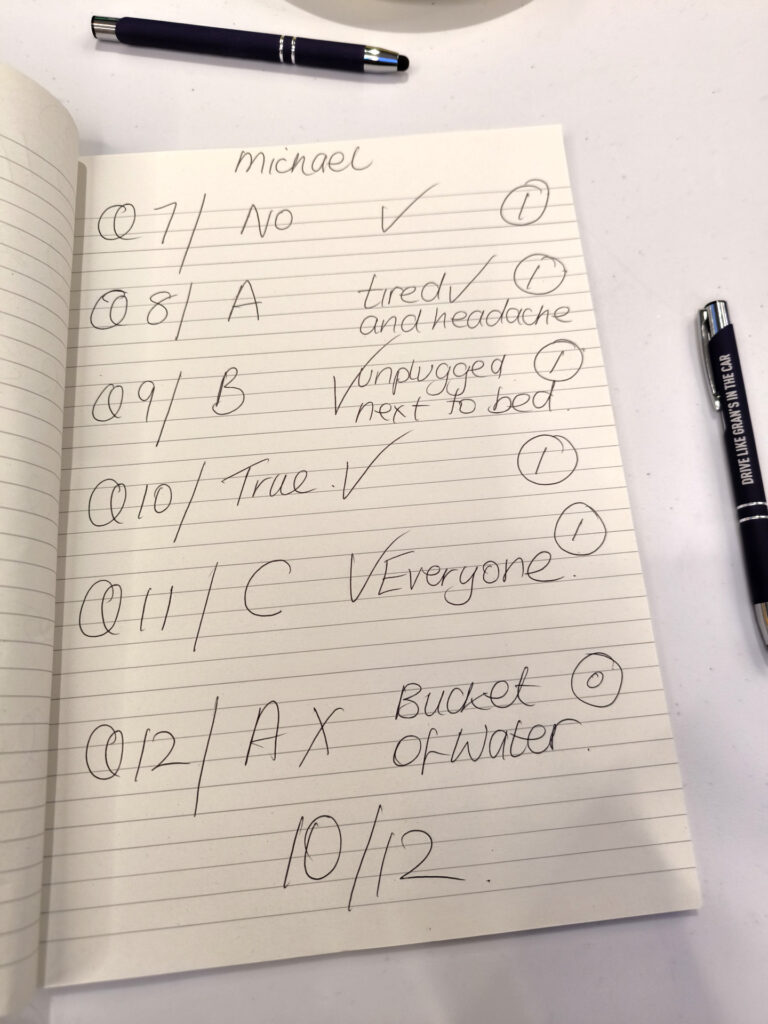 Michael
Q7/ NO ✓ 1
Q8/ A tired ✓ 1
and headache
Q9/ B ✓ unplugged 1
next to bed.
Q10/ True. ✓ 1
Q11/ C ✓ Everyone. 1
Q12/ A X Bucket 0
Of Water.
10/12.
DRIVE LIKE GRAN'S IN THE CAR